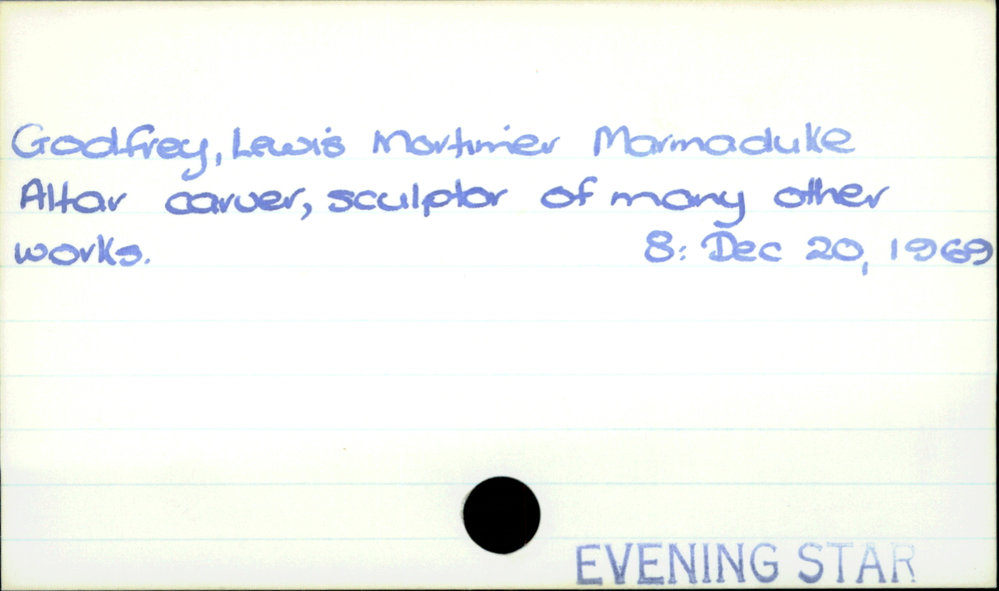 Godfrey, Lewis Mortimer Marmaduke
Altar carver, sculptor of many other
works. 8: Dec 20, 1969
EVENING STAR